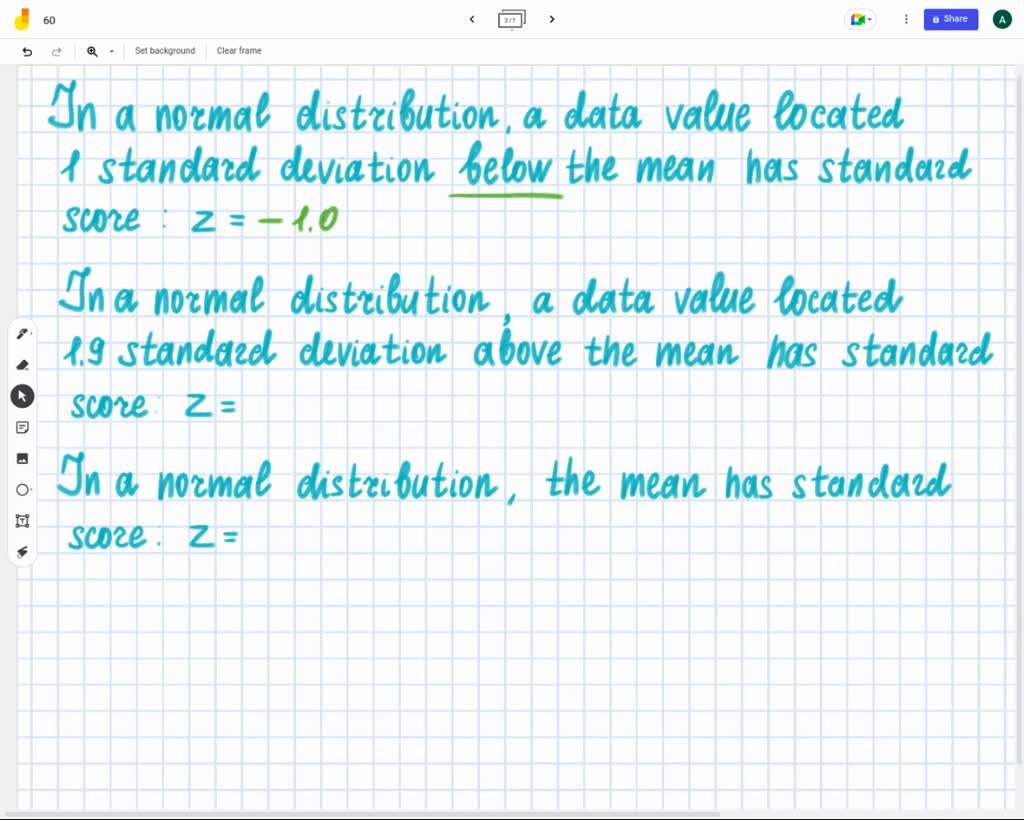 60
2/7
Share
A
Set background
Clear frame
In a normal distribution, a data value located
1 standard deviation below the mean has standard
score : z = - 1.0
In a normal distribution, a data value located
1.9 standard deviation above the mean has standard
score : z =
In a normal distribution, the mean has standard
score : z =